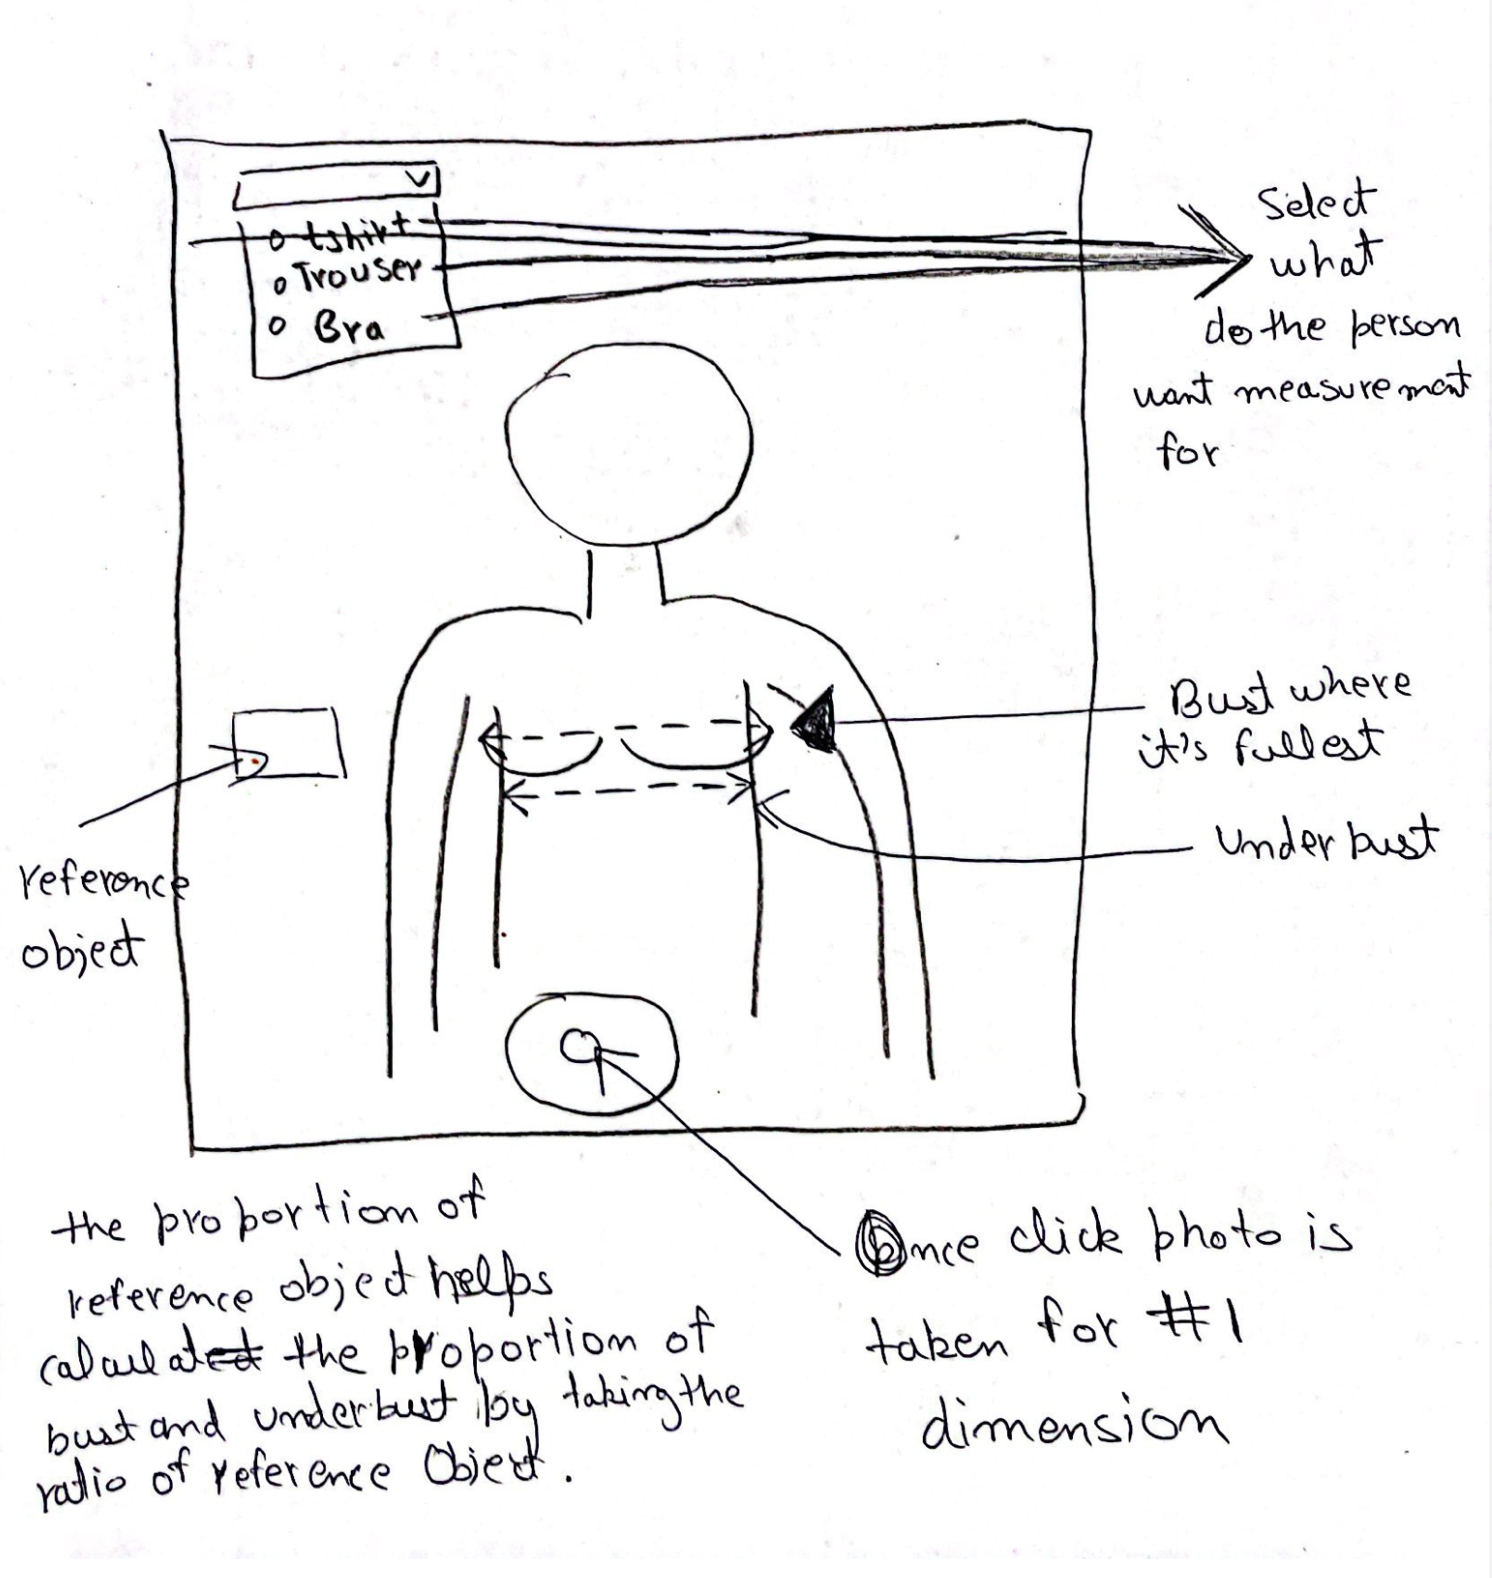 tshirt
Trouser
Bra
Select
what
do the person
want measurement
for
Bust where
it's fullest
Under bust
reference
object
the proportion of
reference object helps
calculated the proportion of
bust and underbust by taking the
ratio of reference Object.
Once click photo is
taken for #1
dimension